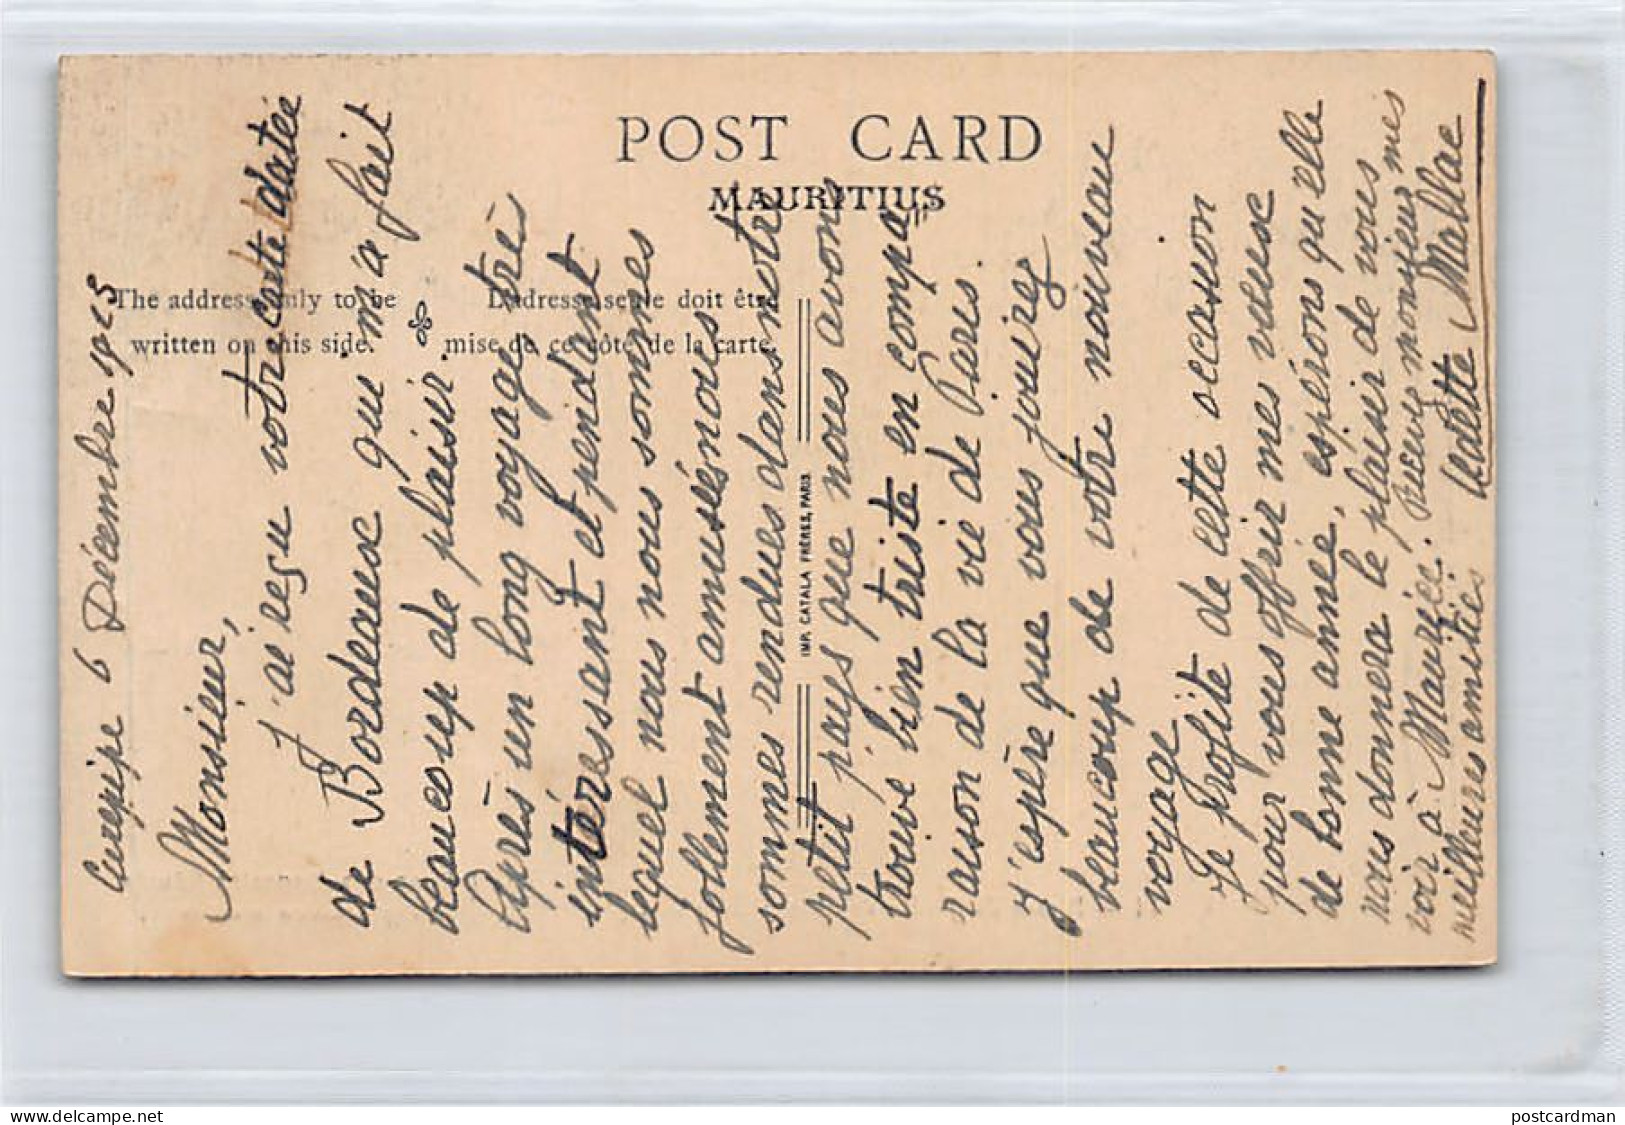 POST CARD
MAURITIUS
The address only to be
written on this side.
L'adresse seule doit être
mise de ce côté de la carte.
IMP. CATALA FRÈRES, PARIS
Curepipe 6 Décembre 1925
Monsieur,
J'ai reçu votre carte datée
de Bordeaux qui m'a fait
beaucoup de plaisir.
Après un long voyage très
intéressant et pendant
lequel nous nous sommes
follement amusés nous
sommes rendues dans notre
petit pays que nous avons
trouvé bien triste en compa
raison de la vie de Paris.
J'espère que vous jouirez
beaucoup de votre nouveau
voyage
Je profite de cette occasion
pour vous offrir mes vœux
de bonne année, espérons qu'elle
nous donnera le plaisir de vous
voir à Maurice. Recevez monsieur mes
meilleures amitiés Mallac
postcardman
delcampe.net